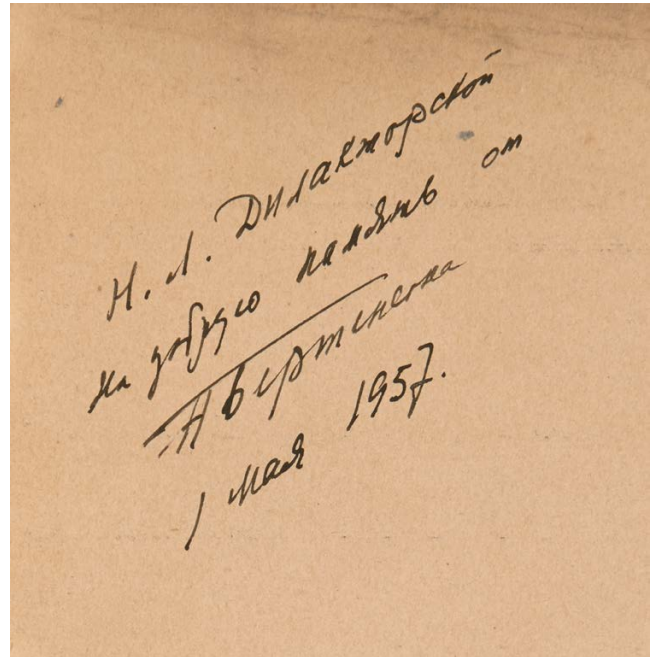 Н. Л. Дилакторской
на добрую память от
АВертинского
1 мая 1957.